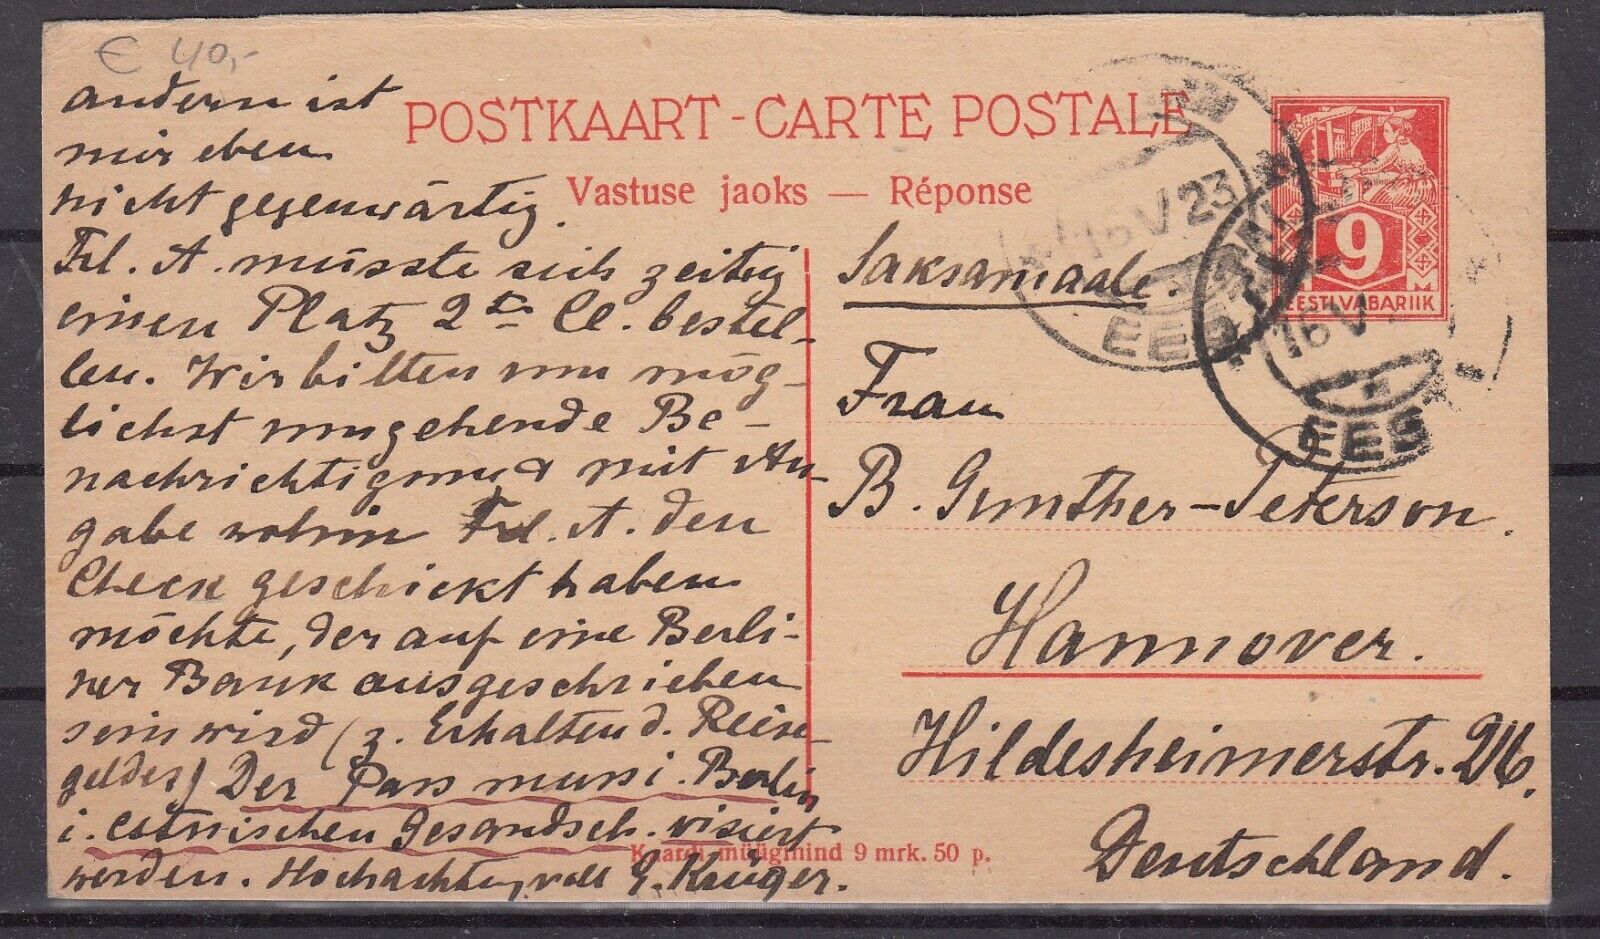 € 40,-
andern ist
mir eben
nicht gegenwärtig.
Frl. A. müsste sich zeitig
einen Platz 2te Cl. bestel-
len. Wir bitten um mög-
lichst umgehende Be-
nachrichtigung mit An-
gabe wohin Frl. A. den
Check geschickt haben
möchte, der auf eine Berli-
ner Bank ausgeschrieben
sein wird (z. Erhalten d. Reise-
geldes) Der Pass muss i. Berlin
i. estnischen Gesandsch. visiert
werden. Hochachtungsvoll G. Krüger.
POSTKAART - CARTE POSTALE
Vastuse jaoks — Réponse
9
EESTI VABARIIK
16 V 23
EESTI
16 V
EESTI
Saksamaale.
Frau
B. Gunther-Peterson.
Hannover.
Hildesheimerstr.
Deutschland.
Kaardi müügihind 9 mrk. 50 p.